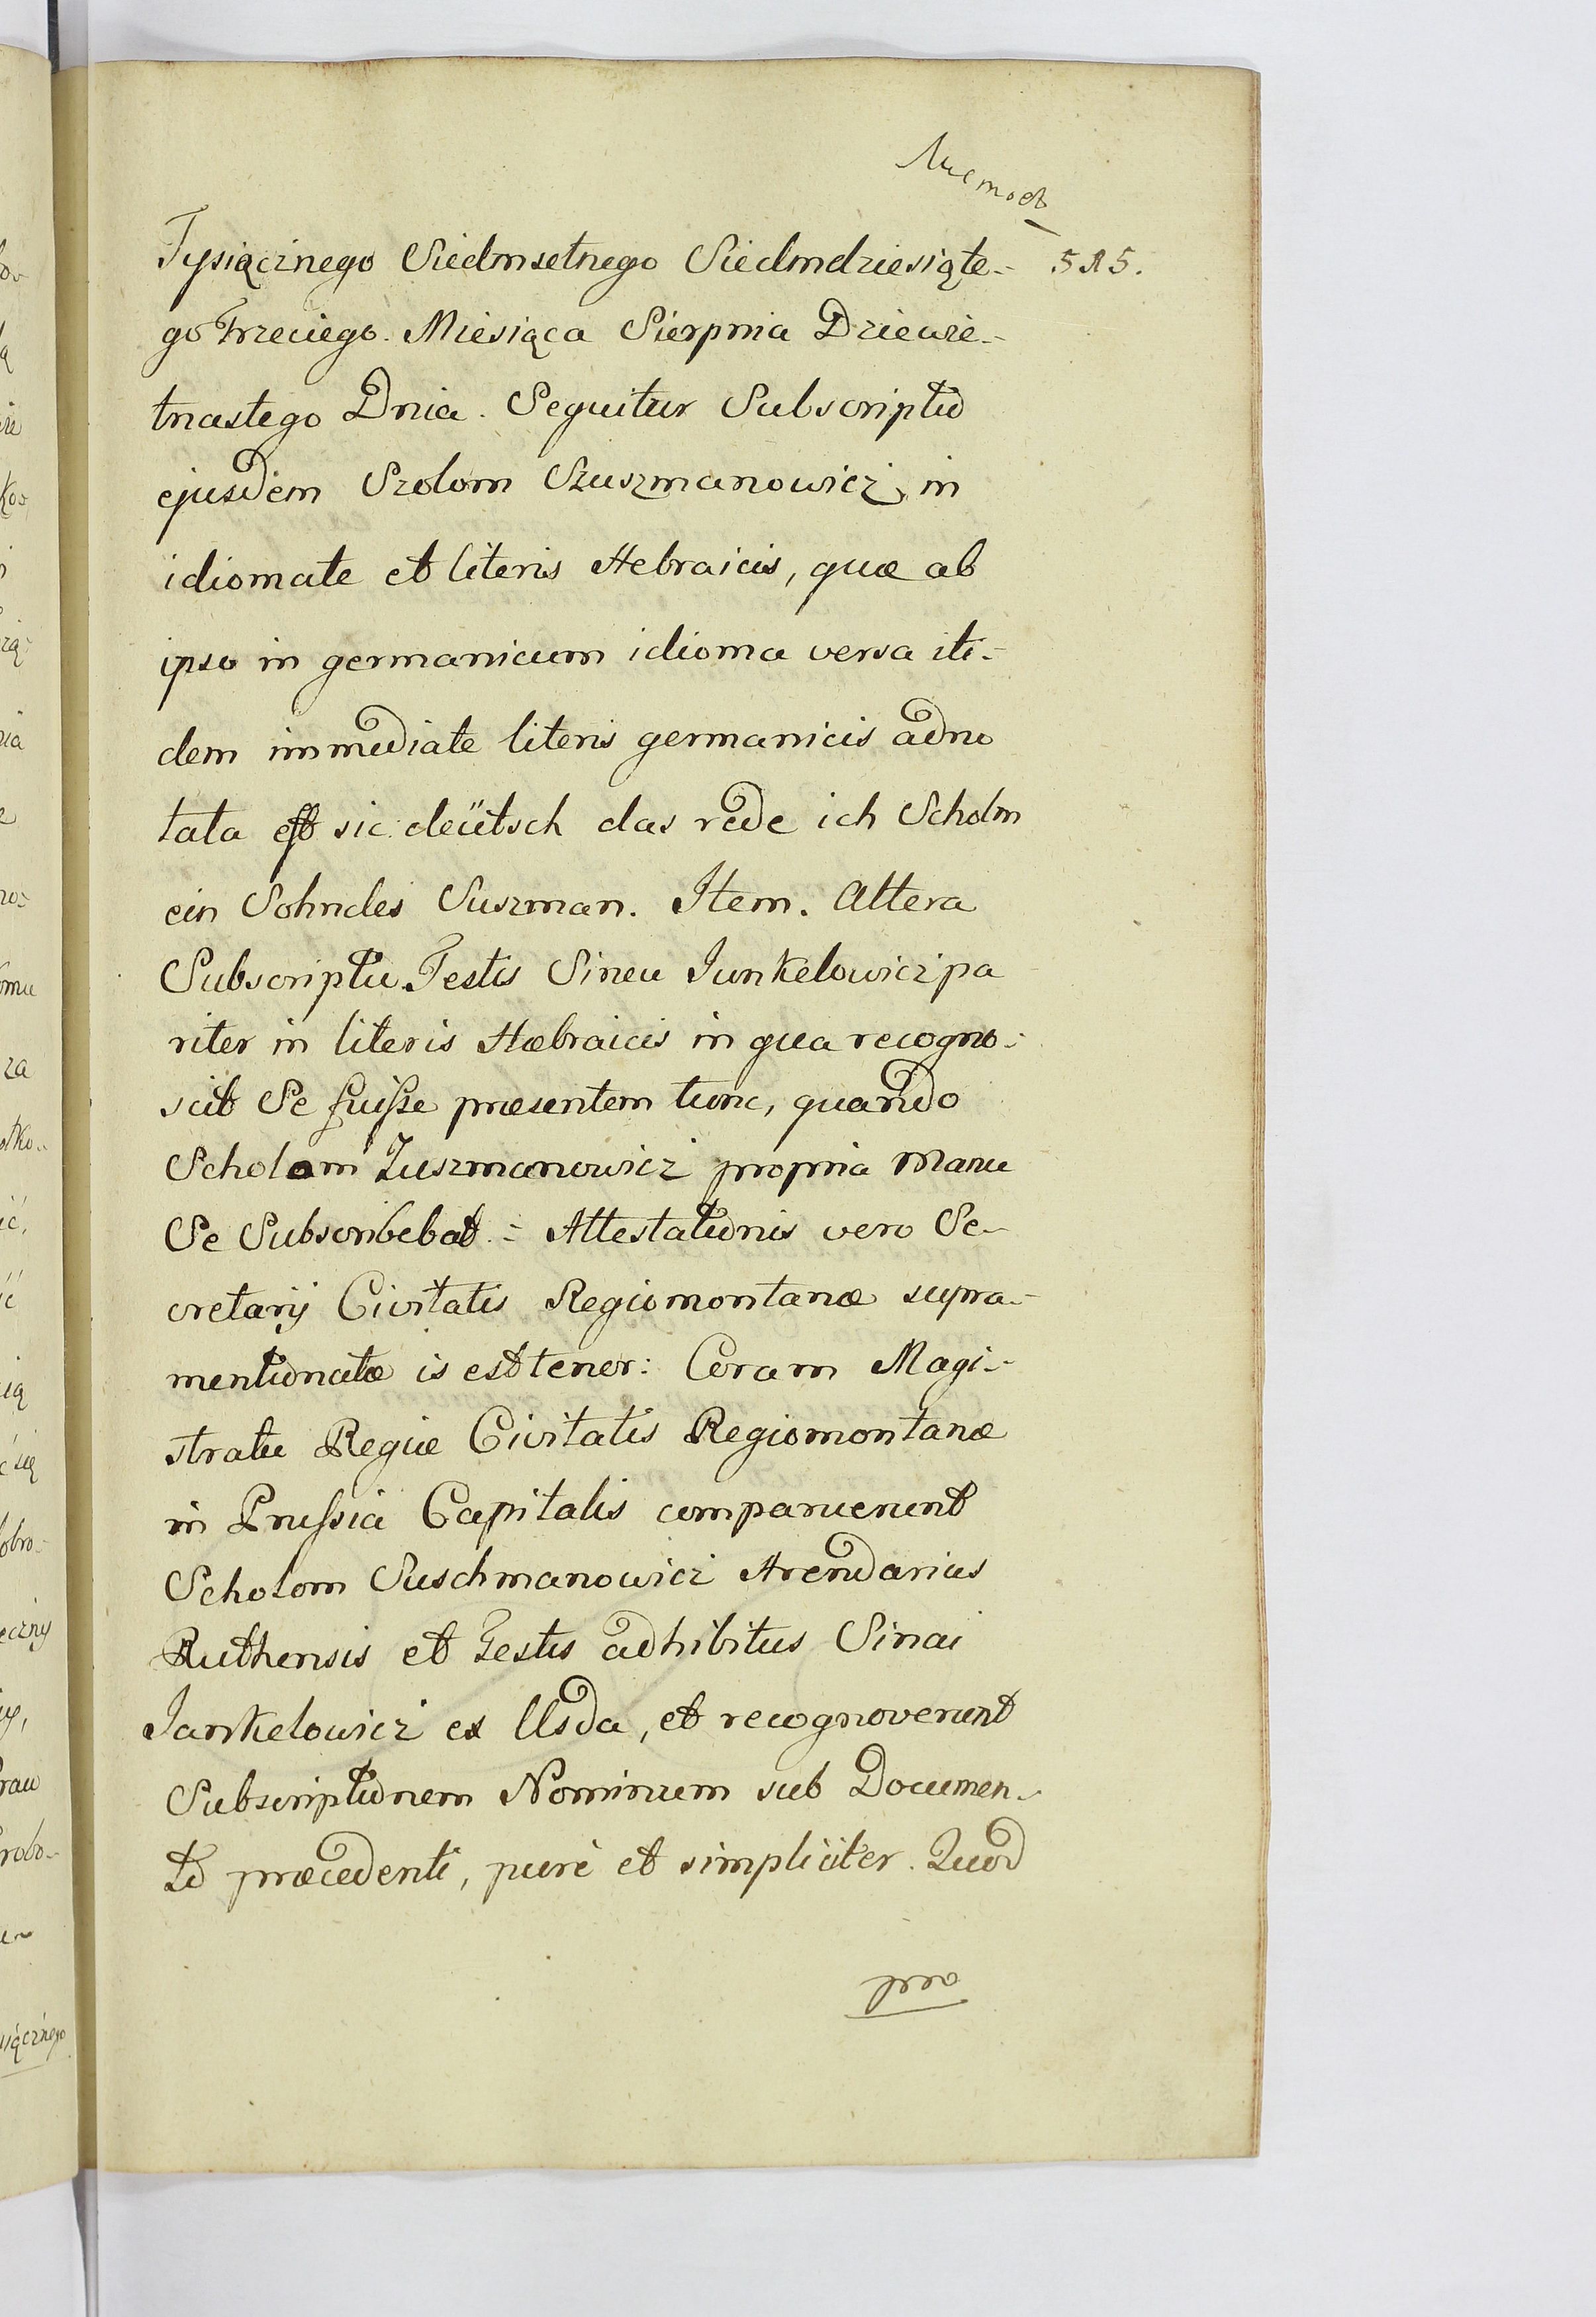 515.
Tysiącznego Siedmsetnego Siedmdziesiąte-
go Trzeciego. Miesiąca Sierpnia Dziewie-
tnastego Dnia. Sequitur Subscriptio
ejusdem Szolom Szuszmanowicz, in
idiomate et literis Hebraicis, quæ ab
ipso in germanicum idioma versa iti-
dem immediate literis germanicis adno
tata est sic. deütsch das rede ich Scholm
ein Sohndes Suszman. Item. Altera
Subscriptio Testis Sineu Junkelowicz pa
riter in literis Hæbraicis in qua recogno-
scit Se fuisse præsentem tunc, quando
Scholom Zuszmanowicz propria Manu
Se Subscribebat. - Attestationis vero Se-
cretarij Civitatis Regiomontanæ supra-
mentionatæ is est tenor: Coram Magi-
stratu Regiæ Civitatis Regiomontanæ
in Prussia Capitalis comparuerunt
Scholom Suschmanowicz Arendarius
Ruthensis et Testis adhibitus Sinai
Jankelowicz ex Usda, et recognoverunt
Subscriptionem Nominum sub Documen-
to præcedenti, purè et simpliciter. Quod
pro